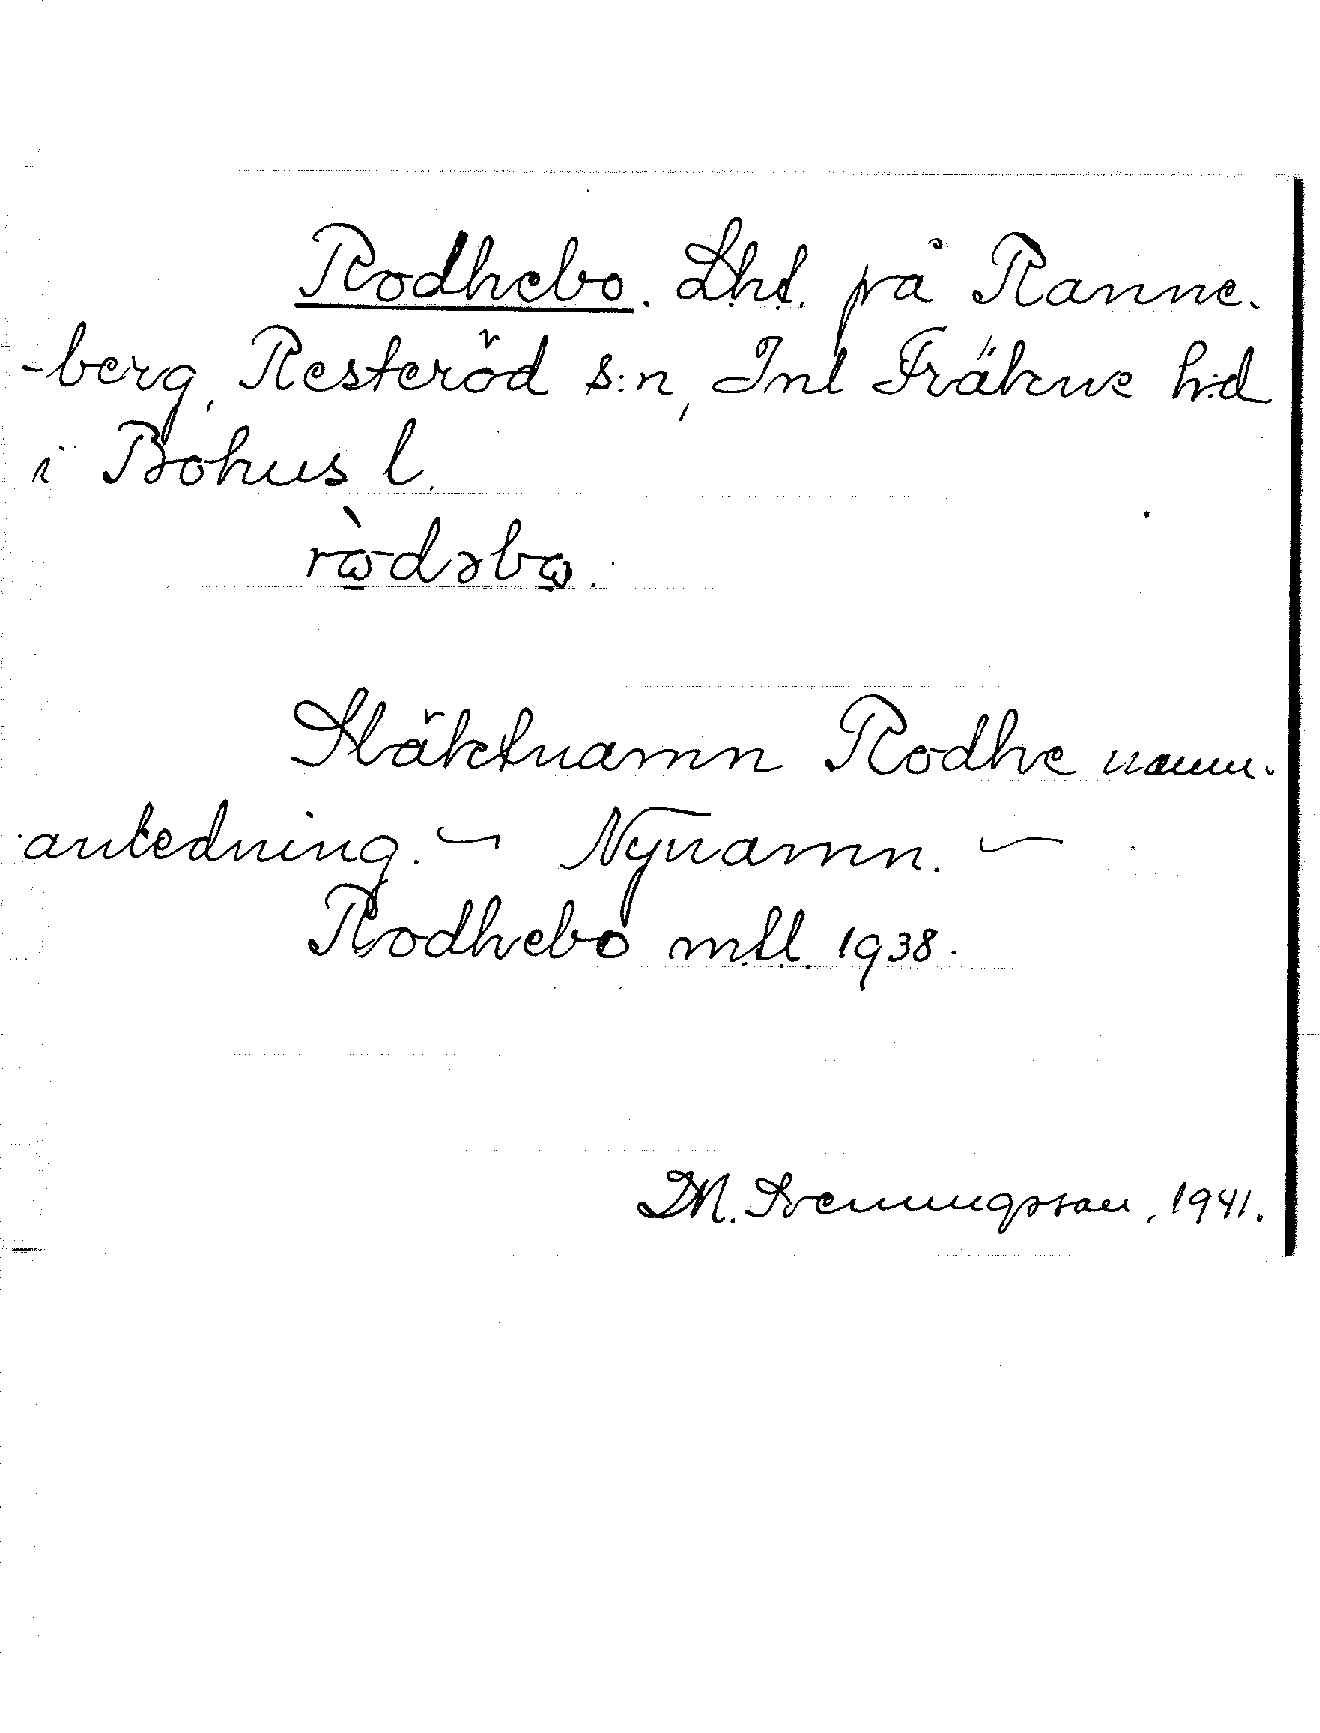 Rodhebo. Lht. på Ranne-
-berg, Resteröd s:n, Inl Fräkne h:d
i Bohus l.
rὼdəbω.
Släktnamn Rodhe namn-
anledning. — Nynamn. —
Rodhebo mtl. 1938.
D.M. Svenningsson, 1941.